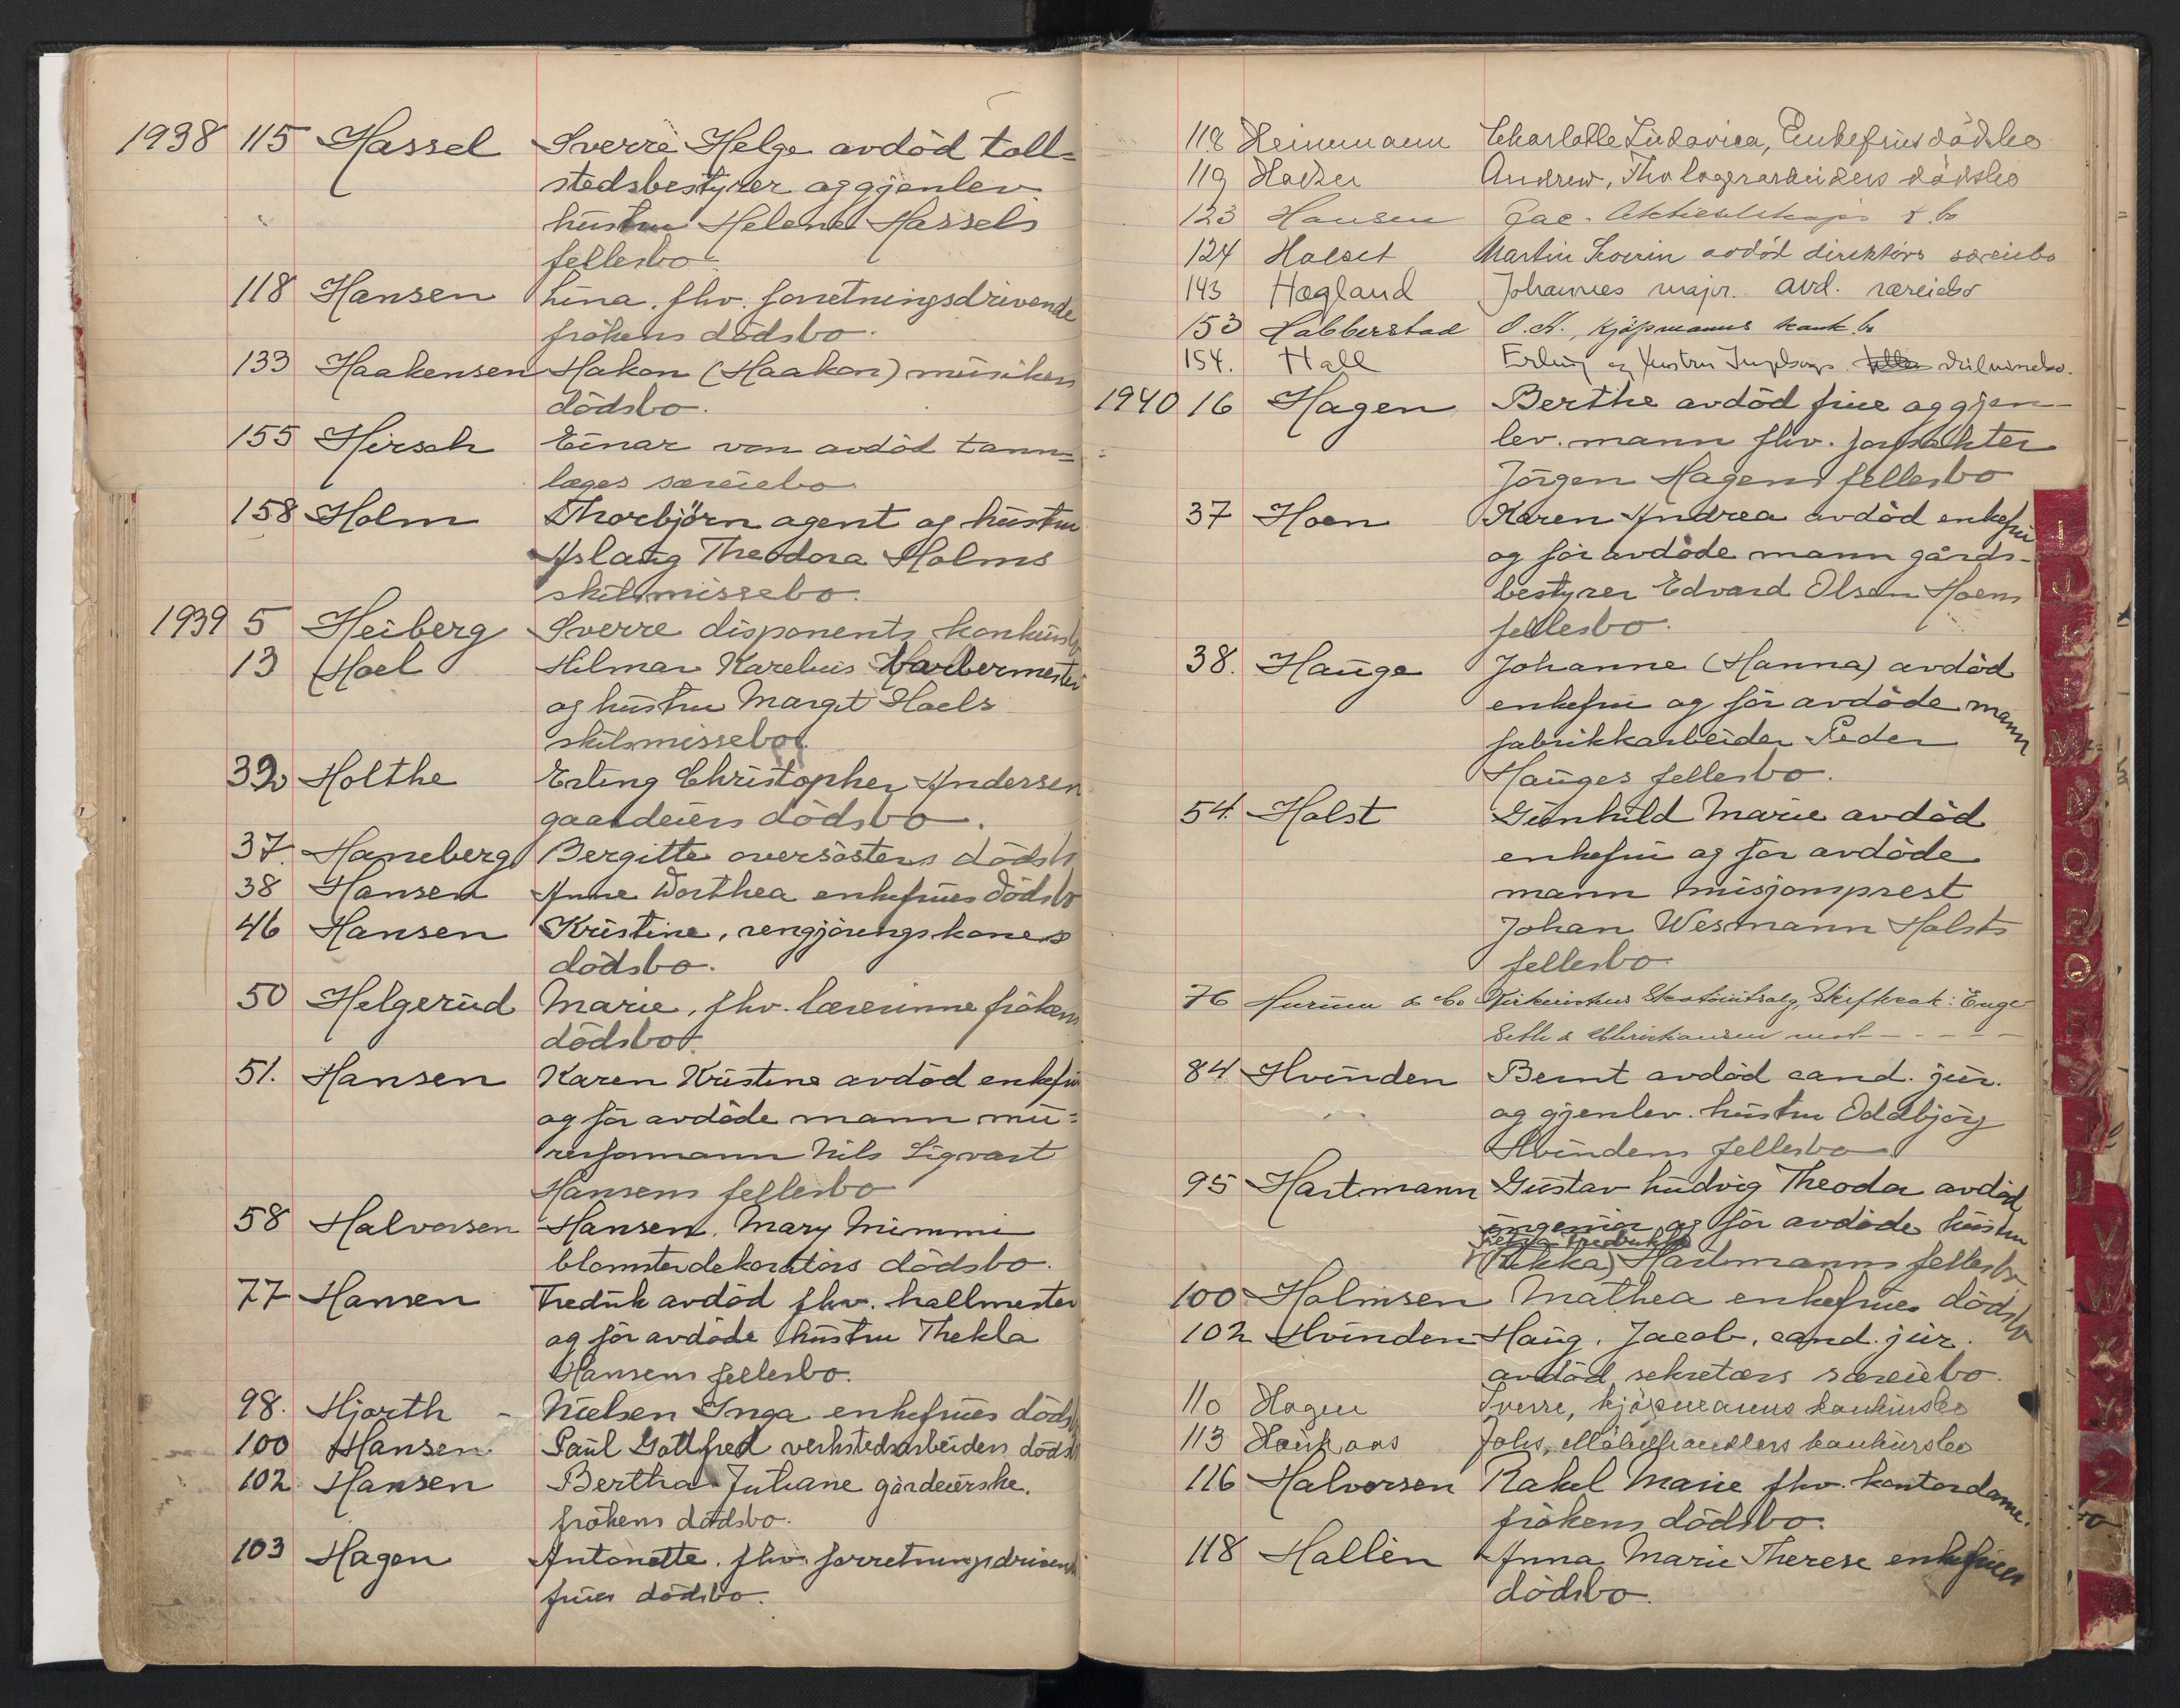 1938 115 Hassel Sverre Helge avdöd toll=
stedsbestyrer og gjenlev.
hustru Helene Hassels
fellesbo
118 Hansen Lina. fhv. forretningsdrivende
frökens dödsbo.
133 Haakensen Hakon (Haakon) musikers
dödsbo.
155 Hirsch Einar von avdöd tann=
læges særeiebo
158 Holm Thorbjörn agent og hustru
Aslaug Theodora Holms
skilsmissebo.
1939 5 Heiberg Sverre disponents konkursbo
13 Hoel Hilmar Karelius barbermester
og hustru Margit Hoels
skilsmissebo
32 Holthe Erling Christopher Andersen
gaardeiers dödsbo.
37. Haneberg Bergitte oversösters dödsbo
38 Hansen Anne Dorthea enkefrues dödsbo
46 Hansen Kristine, rengjöringskones
dödsbo.
50 Helgerud Marie, fhv. lærerinne frökens
dödsbo.
51. Hansen Karen Kristine avdöd enkefru
ogför avdöde mann mu=
rerformann Nils Sigvart
Hansens fellesbo
58 Halvorsen Hansen. Mary Mimmi
blomsterdekoratörs dödsbo.
77 Hansen Fredrik avdöd fhv. hallmester
og för avdöde hustru Thekla
Hansens fellesbo.
98. Hjorth - Nielsen Inga enkefrues dödsbo
100 Hansen Paul Gottfred verkstedsarbeiders dödsbo
102 Hansen Bertha Juliane gårdeierske.
frökens dödsbo.
103 Hagen Antonette. fhv. forretningsdrivende
frues dödsbo.
118 Heinemann Charlotte Ludovica, Enkefrus dödsbo
119 Andrew, Fhv lagerarbeiders dödsbo
123 Hansen Jac. Aktieselskaps k.bo
124 Halset Martin Severin avdöd direktörs særeiebo
143 Hagland Johannes major. avd. særeiebo
153 Habberstad O. K., kjöpmanns konk.bo
154. Hall Erling og hustru Ingeborgs skilsmissebo.
1940 16 Hagen Berthe avdöd frue og gjen-
lev. mann fhv. forpakter
Jörgen Hagens fellesbo
37 Hoen Karen Andrea avdöd enkefru
og för avdöde mann gårds-
bestyrer Edvard Olsen Hoens
fellesbo.
38. Hauge Johanne (Hanna) avdöd
enkefru og för avdöde mann
fabrikkarbeider Peder
Hauges fellesbo.
54. Holst Gunhild Marie avdöd
enkefru og för avdöde
mann misjonsprest
Johan Wesmann Holsts
fellesbo
76 Hurum & Co
& Christiansen mot - - - -
84 Hvinden Bernt avdöd cand. jur.
og gjenlev. hustru Oddbjörg
Hvindens fellesbo
95 Hartmann Gustav Ludvig Theodor avdöd
ingeniör og för avdöde hustru
Fredrikke
Hartmanns fellesbo
100 Holmsen Mathea enkefrues dödsbo
102 Hvinden Haug. Jacob. cand. jur.
avdöd sekretærs særeiebo.
110 Hagen Sverre, kjöpmanns konkursbo
113 Haukaas Johs, Möbelhandlers konkursbo
116 Halvorsen Rakel Marie fhv. kontordame.
frökens dödsbo.
118 Hallén Anna Marie Therese enkefrues
dödsbo.
I
J
K
L
M
N
O
P
Q
R
S
T
U
V
W
X
Y
Z